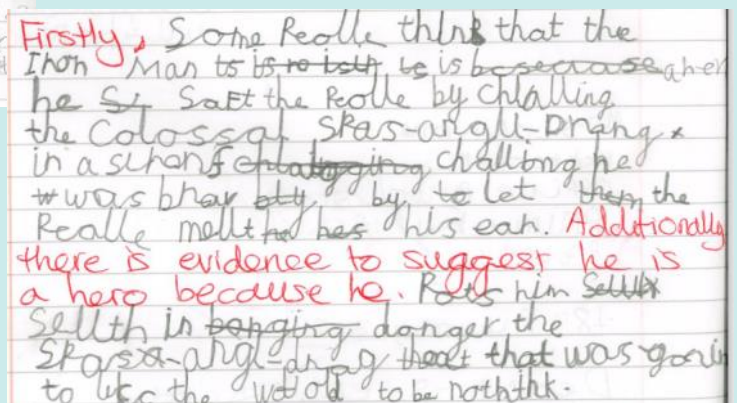 Firstly, Some Reolle think that the
Iron Man ts is re is is a her
he St Saft the Reolle by Chlalling
the Colossal Spas-angll-Drang
in a schonf challbng he
was bhav by to let them the
Realle mellt he hes his eah. Additionally
there is evidence to suggest he is
a hero because he. Pots him
Sellth in bonging danger the
Spasx-angl-drag theat that was gonin
to the wotold to be noththk.